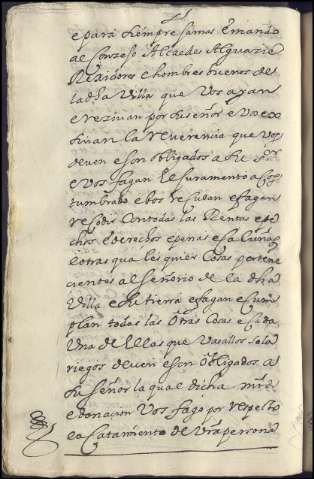 e para siempre jamas e mando
al conzejo Alcaldes Alguazil
Rexidores e hombres buenos de
la dha Villa que Vos ayan
e rezivan por su señor e Vos ex
hivan la reverencia que Vos
deven e son obligados a su Sor
e Vos fagan el juramento acos
tumbrado e Vos recudan e fagan
recudir con todas las Rentas e pe
chos e derechos e penas e caluñas
e otras qualesquier Cosas pertene
cientes al señorio de la dha
Villa e su tierra e fagan e cun
plan todas las Otras Cosas e Cada
Una de ellas que Vasallos sola
riegos deven e son Obligados a
su Señor la qual dicha mrd
e donacion Vos fago por respecto
e acatamiento de Vra persona